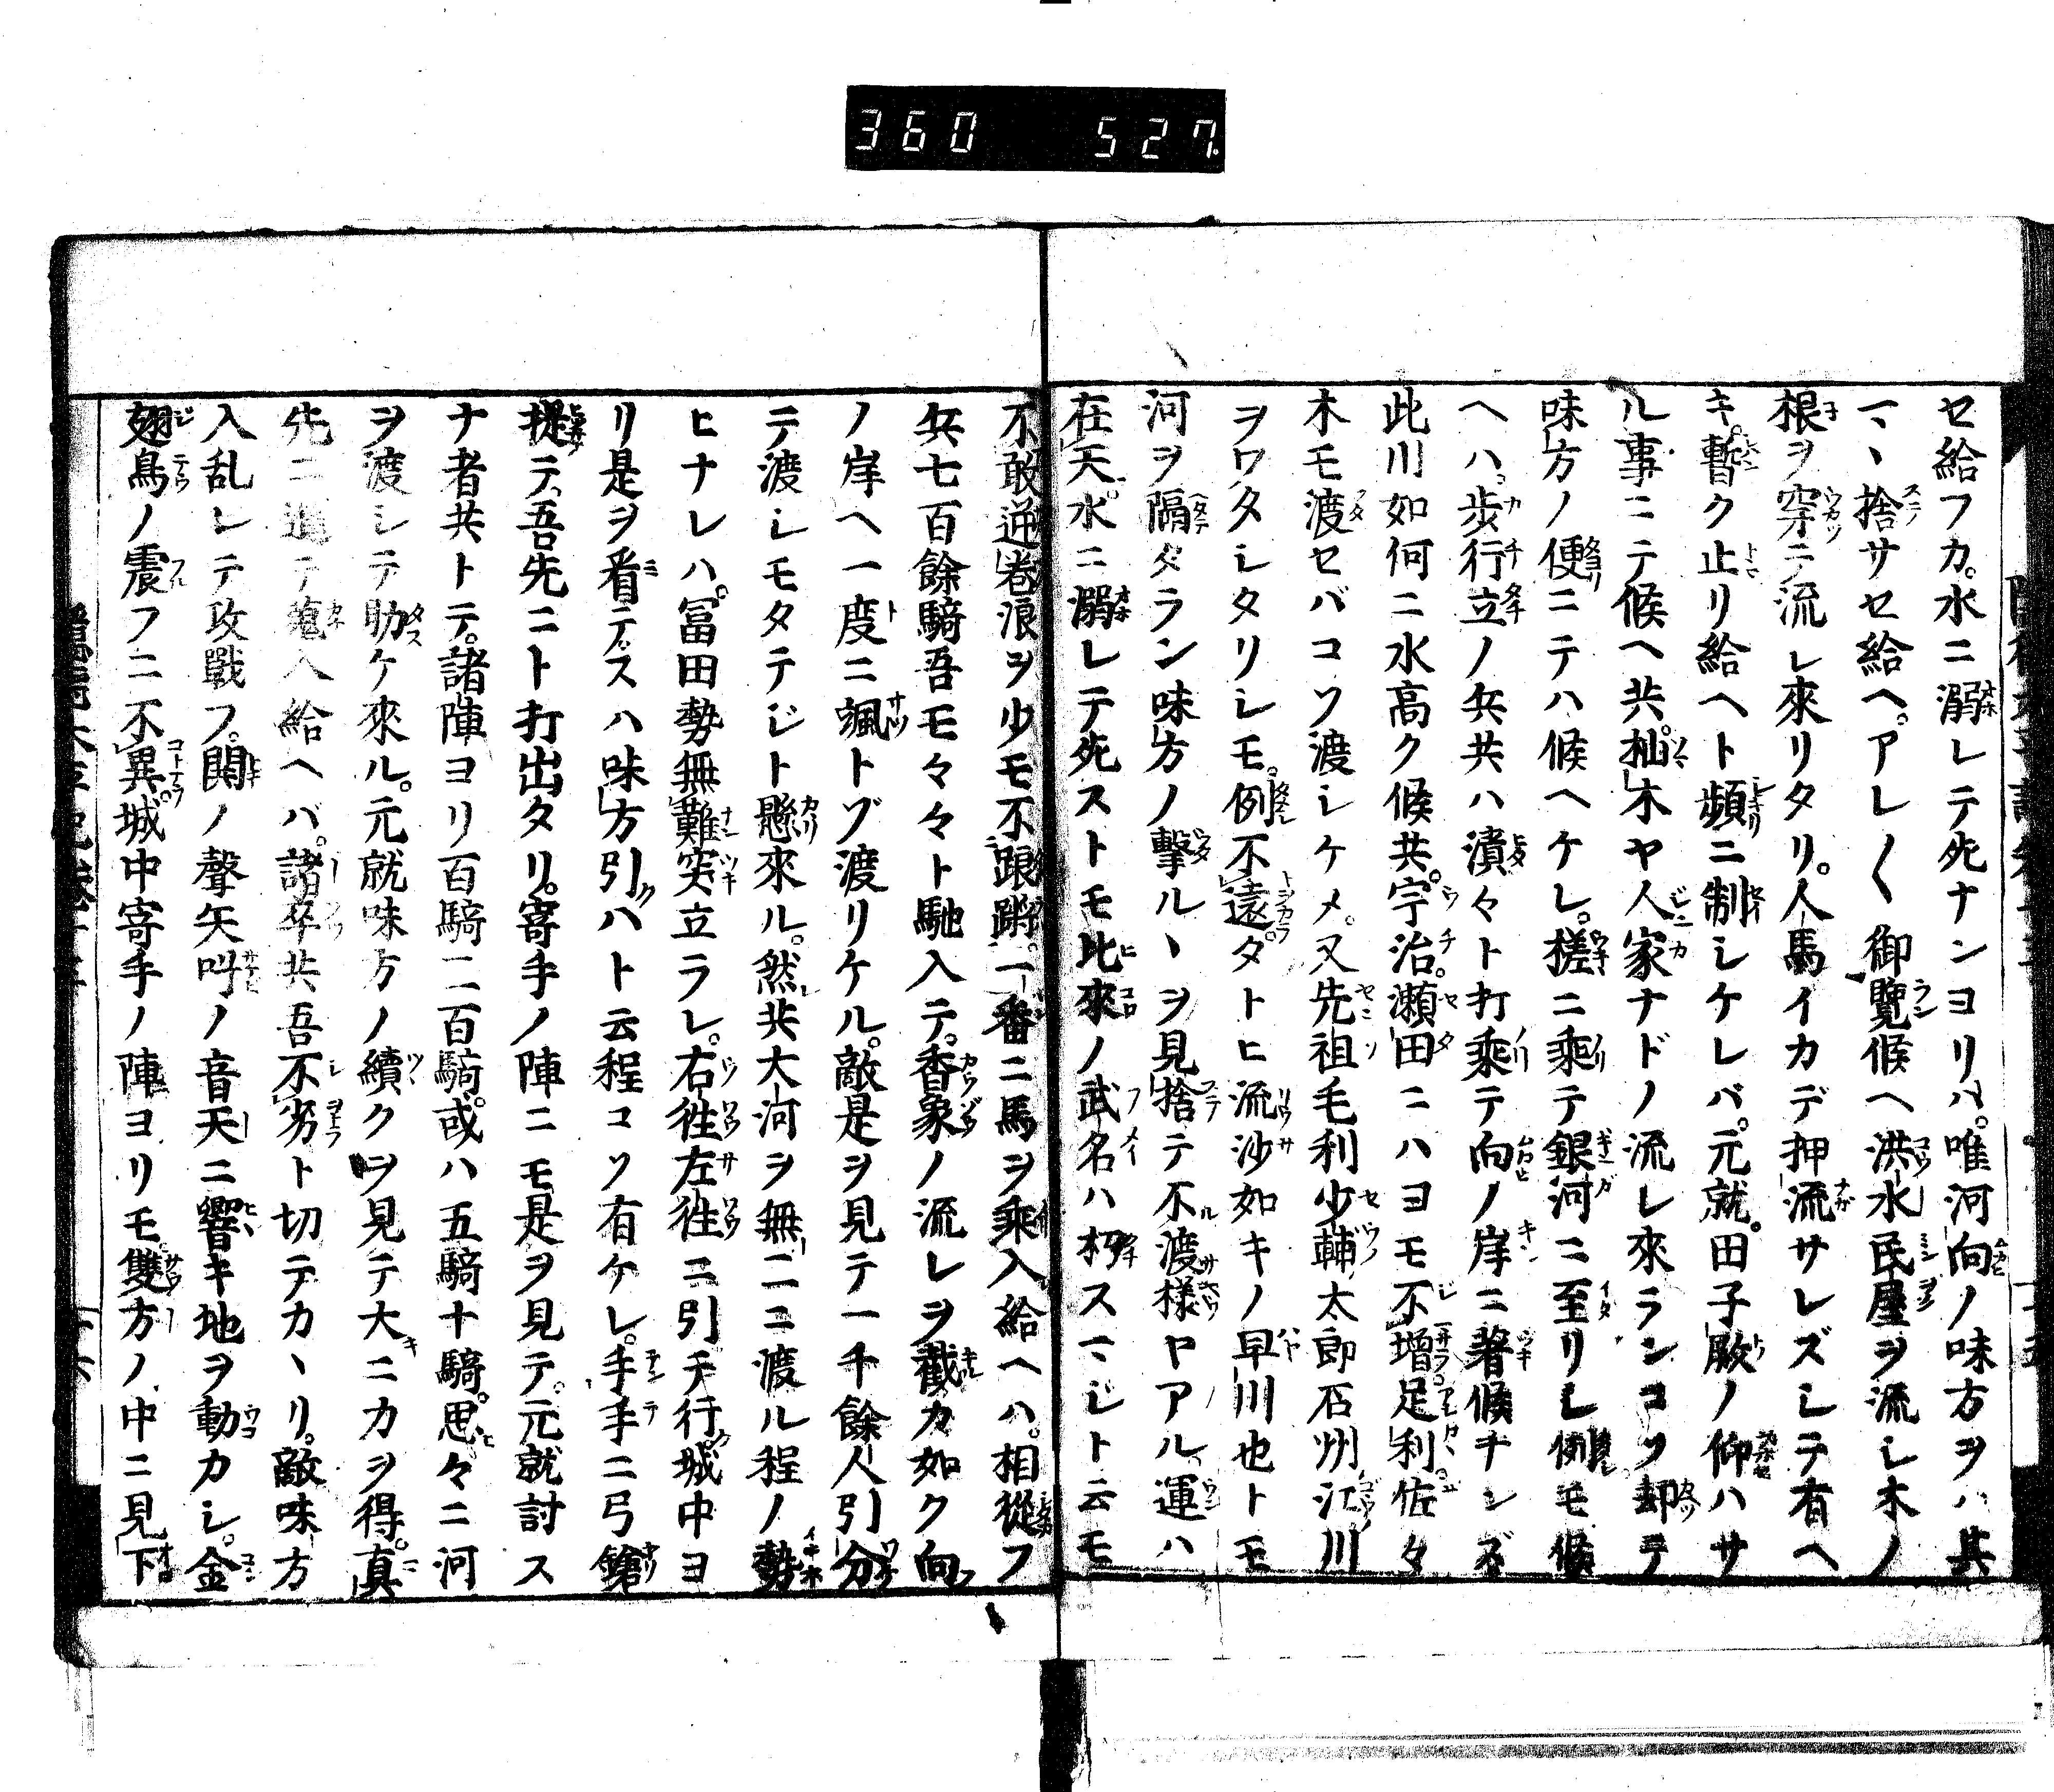 360 527
セ給フカ。水ニ溺レテ死ナンヨリハ。唯河向ノ味方ヲハ其
マヽ捨サセ給ヘ。アレ〱御覽候ヘ洪水民屋ヲ流シ木ノ
根ヲ穿テ流レ來リタリ。人馬イカデ押流サレズシテ有ヘ
キ。暫ク止リ給ヘト頻ニ制シケレバ。元就。田子殿ノ仰ハサ
ル事ニテ候ヘ共。杣木ヤ人家ナドノ流レ來ランコソ却テ
味方ノ便ニテハ候ヘケレ。槎ニ乘テ銀河ニ至リシ例モ候
ヘハ。歩行立ノ兵共ハ漬々ト打乘テ向ノ岸ニ著候ナンズ
此川如何ニ水高ク候共。宇治。瀬田ニハヨモ不増。足利佐々
木モ渡セバコソ渡シケメ。又先祖毛利少輔太郎石州江川
ヲワタシタリシモ。例不遠。タトヒ流沙如キノ早川也トモ
河ヲ隔タラン味方ノ撃ルヽヲ見捨テ不渡樣ヤアル運ハ
在天。水ニ溺レテ死ストモ比來ノ武名ハ朽スマジト云モ
不敢逆巻浪ヲ少モ不踉蹡。一番ニ馬ヲ乘入給ヘハ。相從フ
兵七百餘騎吾モ々々ト馳入テ。香象ノ流レヲ截カ如ク向
ノ岸ヘ一度ニ颯トゾ渡リケル。敵是ヲ見テ一千餘人引分
テ渡シモタテジト懸來ル。然共大河ヲ無二ニ渡ル程ノ勢
ヒナレハ。冨田勢無難突立ラレ。右往左往ニ引テ行。城中ヨ
リ是ヲ看テ。スハ味方引ハト云程コソ有ケレ。手手ニ弓鎗
提テ。吾先ニト打出タリ。寄手ノ陣ニモ是ヲ見テ。元就討ス
ナ者共トテ。諸陣ヨリ百騎二百騎。或ハ五騎十騎。思々ニ河
ヲ渡シテ助ケ來ル。元就味方ノ續クヲ見テ大ニカヲ得。真
先ニ進テ蒐入給ヘバ。諸卒共吾不劣ト切テカヽリ。敵味方
入乱レテ攻戰フ。鬨ノ聲矢叫ノ音天ニ響キ地ヲ動カシ。金
翅鳥ノ震フニ不異城中寄手ノ陣ヨリモ雙方ノ中ニ見下